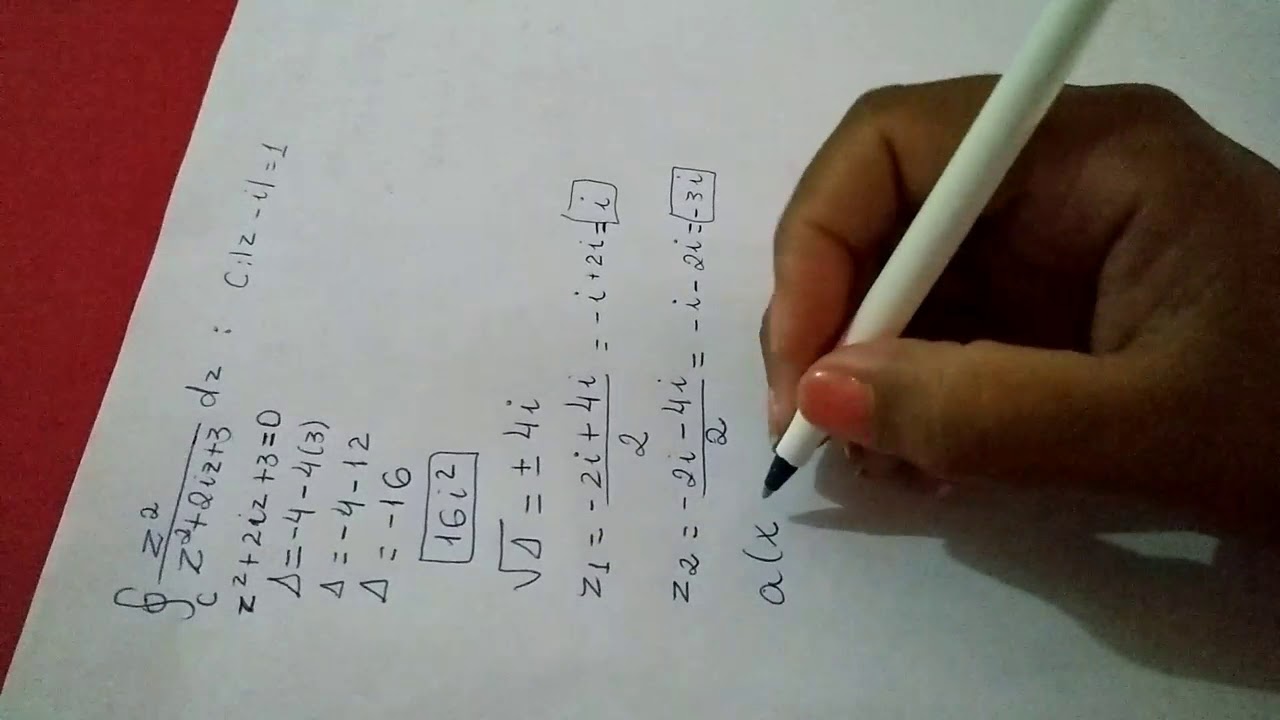 ∮_C z²/(z²+2iz+3) dz ; C:|z-i|=1
z²+2iz+3=0
Δ=-4-4(3)
Δ=-4-12
Δ=-16
16i²
√Δ = ± 4i
z₁ = (-2i+4i)/2 = -i+2i = i
z₂ = (-2i-4i)/2 = -i-2i = -3i
a(x